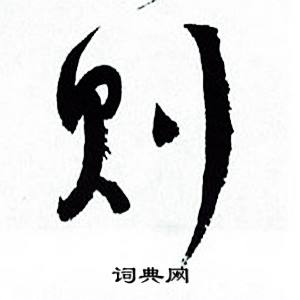 则
词典网